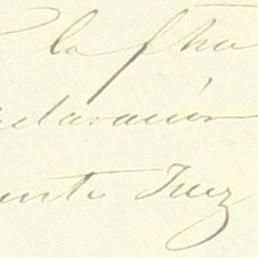 la fha
claración
ente Juez